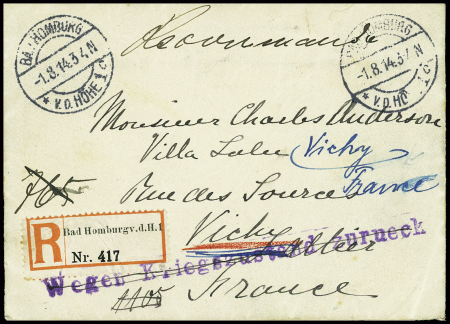 BAD HOMBURG
-1.8.14.3-4 N
* v.d. HÖHE 1 c
Recommandé
BAD HOMBURG
-1.8.14.3-4 N
* v.d. HÖ
Monsieur Charles Anderson
Villa Lulu Vichy
765 Rue des Sources France
Vichy
Allier
R
Bad Homburg v. d. H. 1
Nr. 417
Wegen Kriegszustand zurueck
1105 France